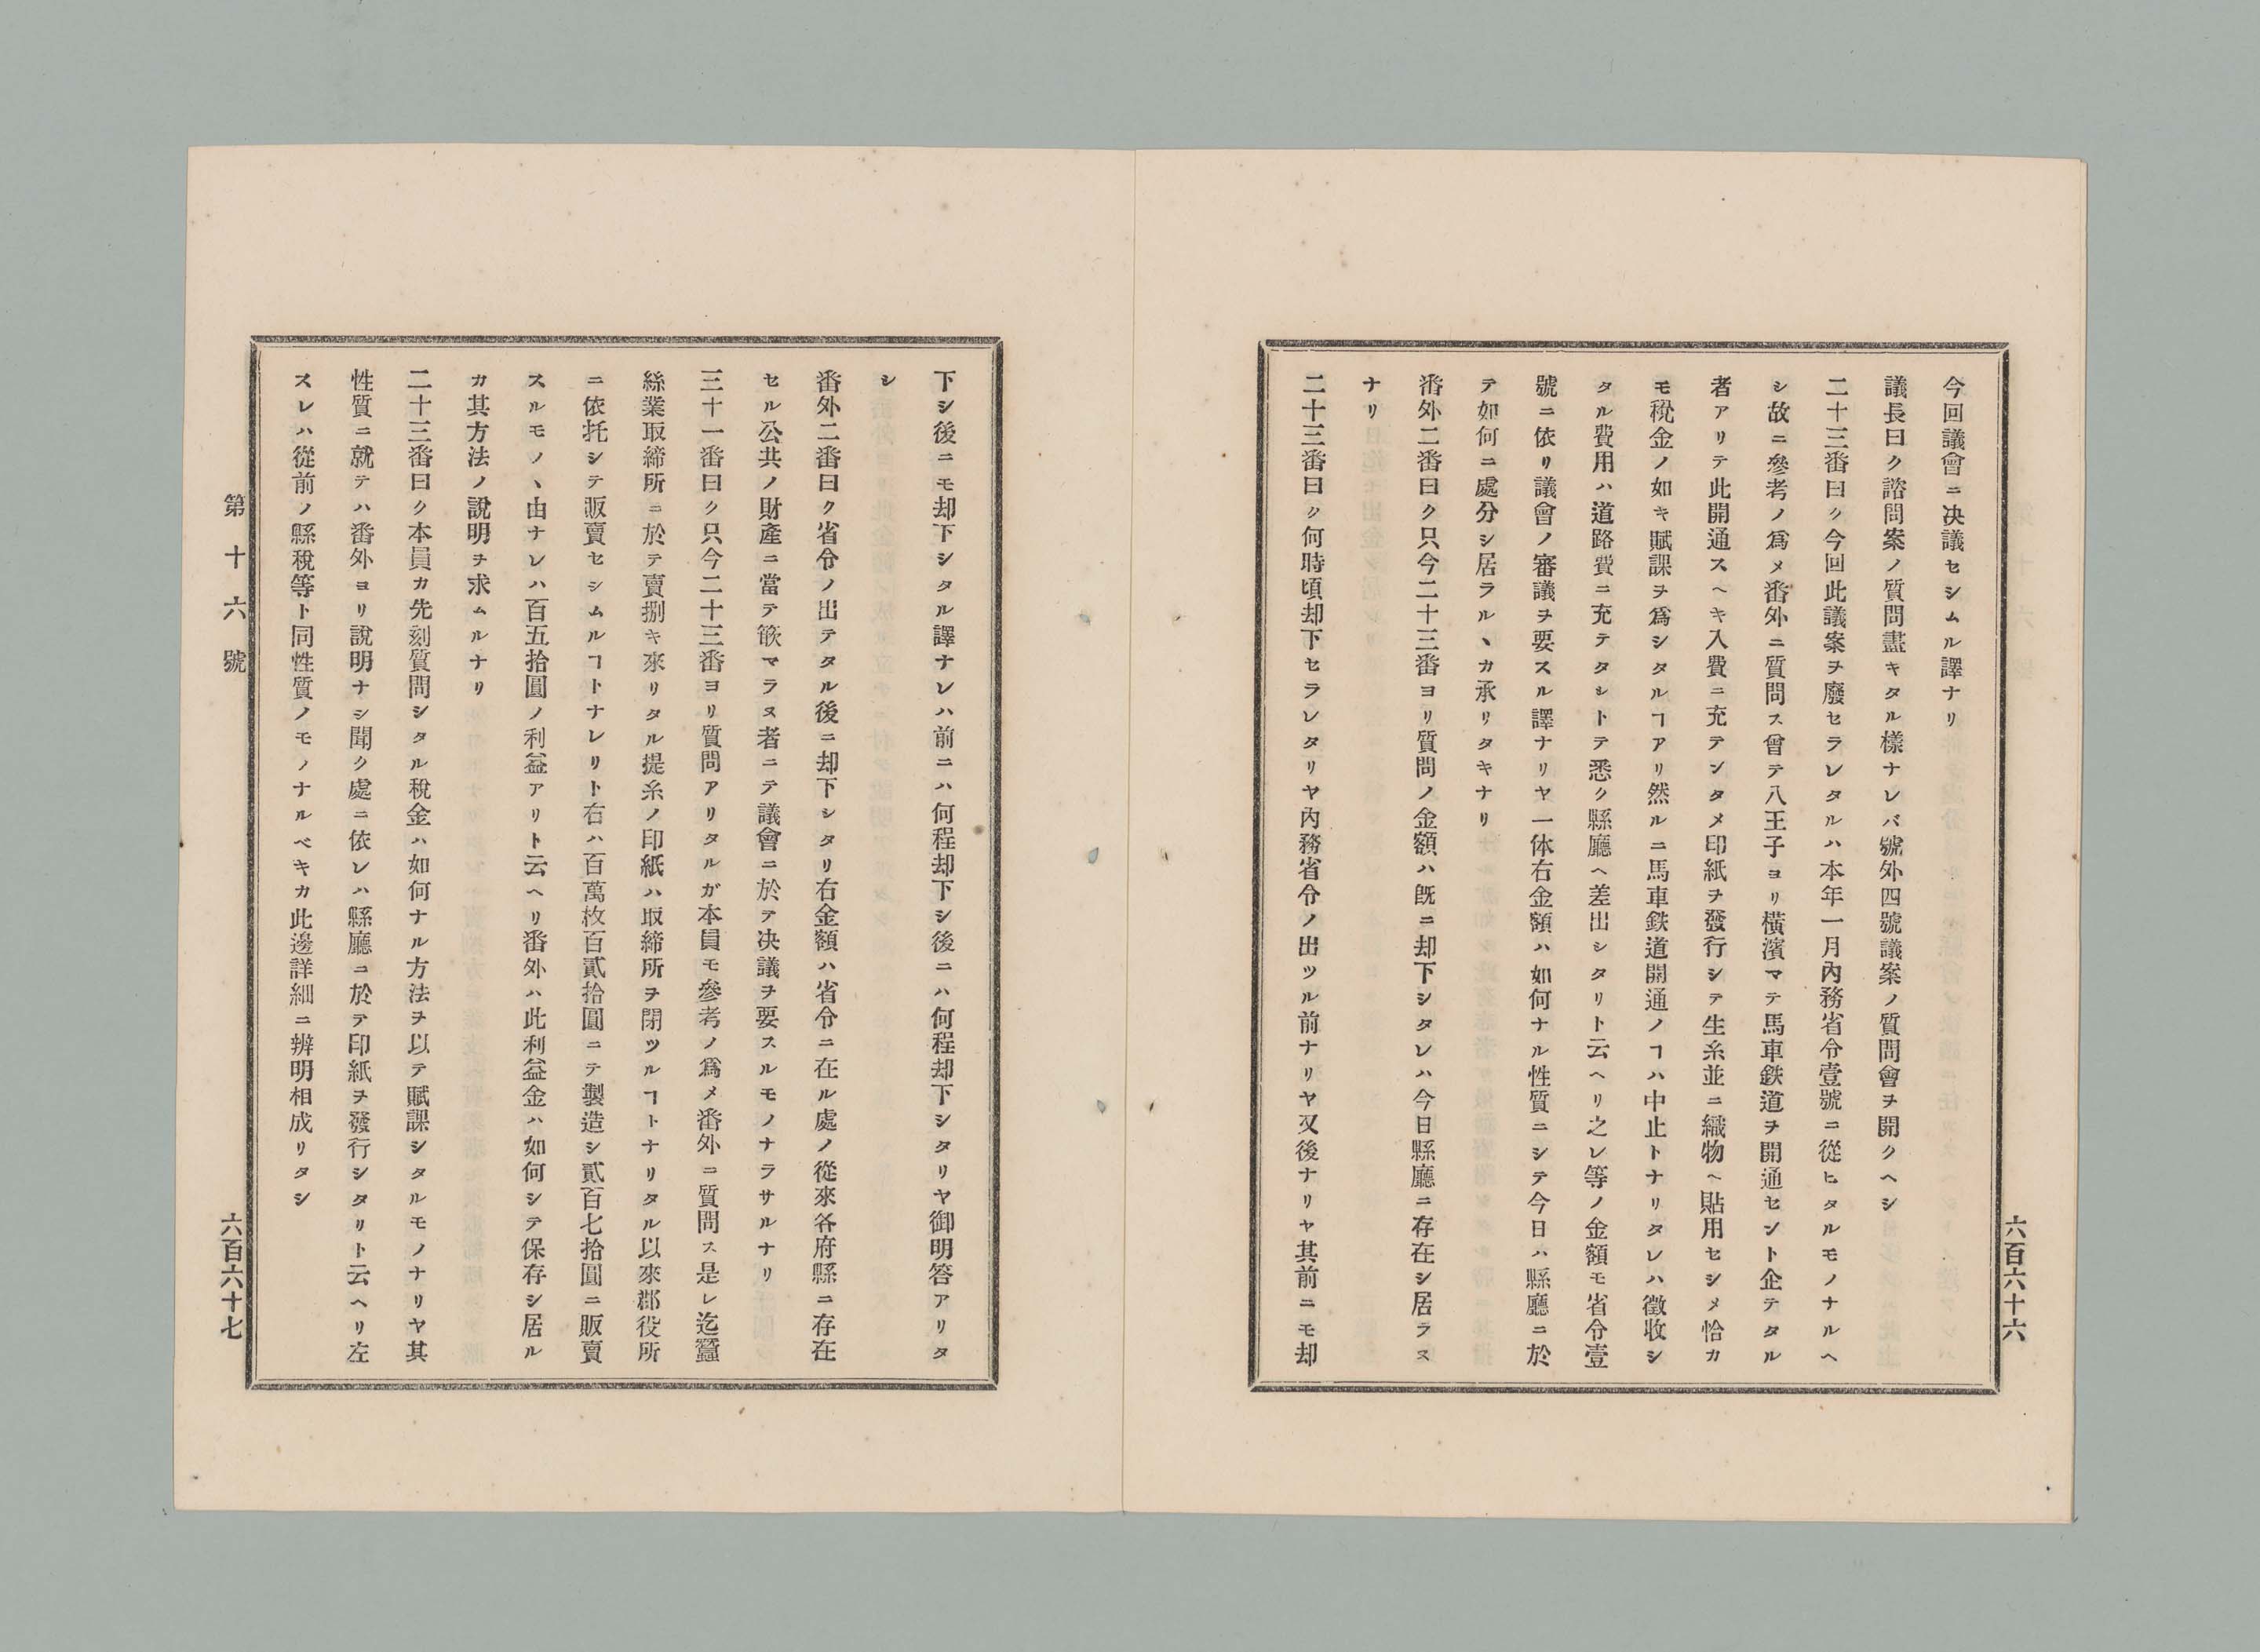 今回議會ニ决議セシムル譯ナリ
議長曰ク諮問案ノ質問盡キタル樣ナレバ號外四號議案ノ質問會ヲ開クヘシ
二十三番曰ク今回此議案ヲ廢セラレタルハ本年一月內務省令壹號ニ從ヒタルモノナルヘ
シ故ニ參考ノ爲メ番外ニ質問ス曾テ八王子ヨリ橫濱マテ馬車鉄道ヲ開通セント企テタル
者アリテ此開通スヘキ入費ニ充テンタメ印紙ヲ發行シテ生糸並ニ織物ヘ貼用セシメ恰カ
モ稅金ノ如キ賦課ヲ爲シタルヿアリ然ルニ馬車鉄道開通ノヿハ中止トナリタレハ徵收シ
タル費用ハ道路費ニ充テタシトテ悉ク縣廳ヘ差出シタリト云ヘリ之レ等ノ金額モ省令壹
號ニ依リ議會ノ審議ヲ要スル譯ナリヤ一体右金額ハ如何ナル性質ニシテ今日ハ縣廳ニ於
テ如何ニ處分シ居ラルヽカ承リタキナリ
番外二番曰ク只今二十三番ヨリ質問ノ金額ハ旣ニ却下シタレハ今日縣廳ニ存在シ居ラス
ナリ
二十三番曰ク何時頃却下セラレタリヤ內務省令ノ出ツル前ナリヤ又後ナリヤ其前ニモ却
六百六十六
下シ後ニモ却下シタル譯ナレハ前ニハ何程却下シ後ニハ何程却下シタリヤ御明答アリタ
シ
番外二番曰ク省令ノ出テタル後ニ却下シタリ右金額ハ省令ニ在ル處ノ從來各府縣ニ存在
セル公共ノ財產ニ當テ篏マラヌ者ニテ議會ニ於テ决議ヲ要スルモノナラサルナリ
三十一番曰ク只今二十三番ヨリ質問アリタルガ本員モ參考ノ爲メ番外ニ質問ス是レ迄蠶
絲業取締所ニ於テ賣捌キ來リタル提糸ノ印紙ハ取締所ヲ閉ツルヿトナリタル以來郡役所
ニ依托シテ販賣セシムルヿトナレリト右ハ百萬枚百貳拾圓ニテ製造シ貳百七拾圓ニ販賣
スルモノヽ由ナレハ百五拾圓ノ利益アリト云ヘリ番外ハ此利益金ハ如何シテ保存シ居ル
カ其方法ノ說明ヲ求ムルナリ
二十三番曰ク本員カ先刻質問シタル稅金ハ如何ナル方法ヲ以テ賦課シタルモノナリヤ其
性質ニ就テハ番外ヨリ說明ナシ聞ク處ニ依レハ縣廳ニ於テ印紙ヲ發行シタリト云ヘリ左
スレハ從前ノ縣稅等ト同性質ノモノナルベキカ此邊詳細ニ辨明相成リタシ
第十六號
六百六十七